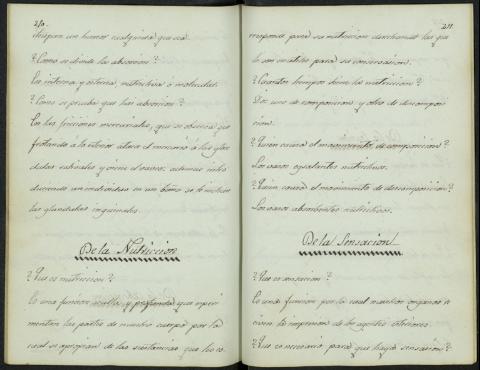 210.
chupan un humor cualquiera que sea.
? Como se divide la absorcion ?
En interna y esterna, nutritiva ó molecular.
? Como se prueba que hay absorcion ?
Con las fricciones mercuriales, que se observa que
frotando á lo esterior ataca el mercurio á las glan
dulas salivales y oseas;
duciendo un individuo en un baño se le inchan
las glandulas inguinales.
De la Nutricion
? Que es nutricion ?
Es una funcion oculta y profunda que esperi
mentan las partes de nuestro cuerpo por la
cual se apropian de las sustancias que les co-
211.
rresponde para su nutricion desechando las que
le son inutiles para su conservacion.
? Cuantos tiempos tiene la nutricion ?
Dos uno de composicion y otro de descompo
sicion.
? Quien causa el movimiento de composicion ?
Los vasos exalantes nutritivos.
? Quien causa el movimiento de descomposicion ?
Los vasos absorbentes nutritivos.
De la Sensacion
? Que es sensacion ?
Es una funcion por la cual nuestros organos re
civen la impresion de los agentes esteriores.
? Que es necesario para que haya sensacion ?